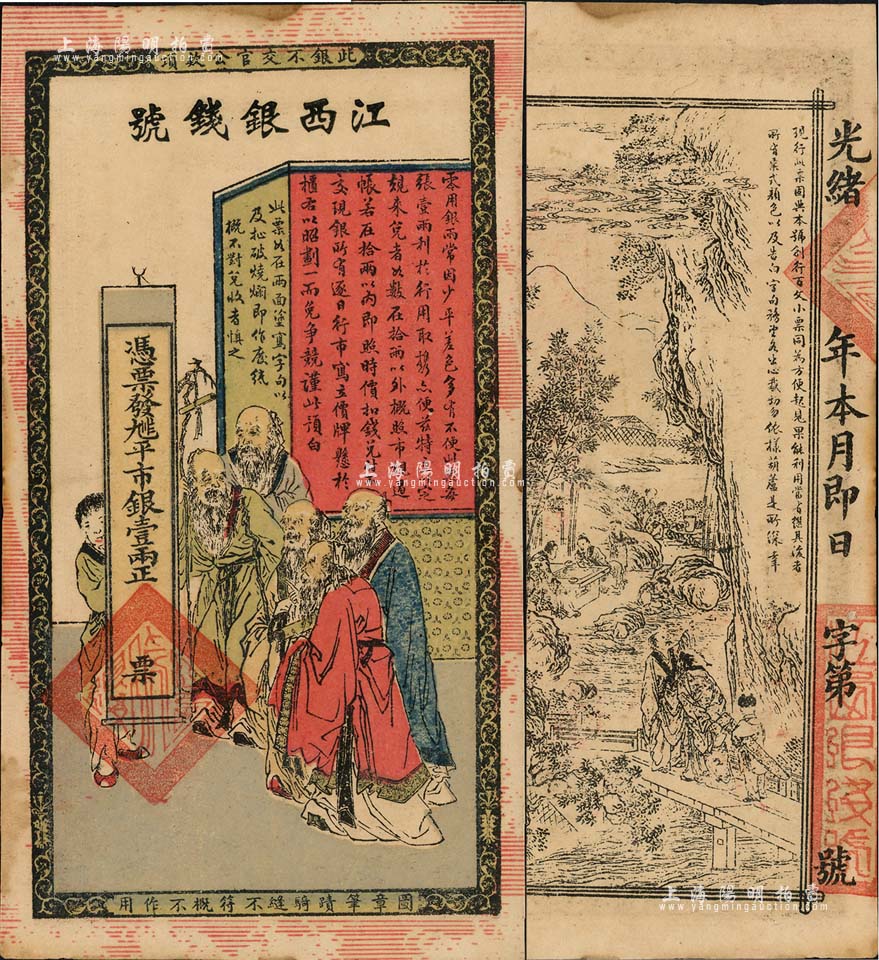 此銀不交官
江西銀錢號
零用銀兩常因少平差色多有不便此
張壹兩利於行用取攜亦便茲特
規來兌者如數在拾兩以外概照市
帳若在拾兩以內即照時價扣錢兌
交現銀所有逐日行市寫立價牌懸於
櫃右以昭劃一而免爭競謹此預白
此票如在兩面塗寫字句以
及扯破燒爛即作廢紙
概不對兌收者慎之
憑票發 平市銀壹兩正
票
圖章筆蹟騎縫不符概不作用
光緒 年本月即日 字第 號
現行此票因與本號創行百文小票同為方便起見果能利用當者想具後者
所有票式顏色以及告白字句 切勿依樣葫蘆是所深幸
上海陽明拍賣
www.yangmingauction.com
上海陽明拍賣
www.yangmingauction.com
上海陽明拍賣
www.yangmingauction.com